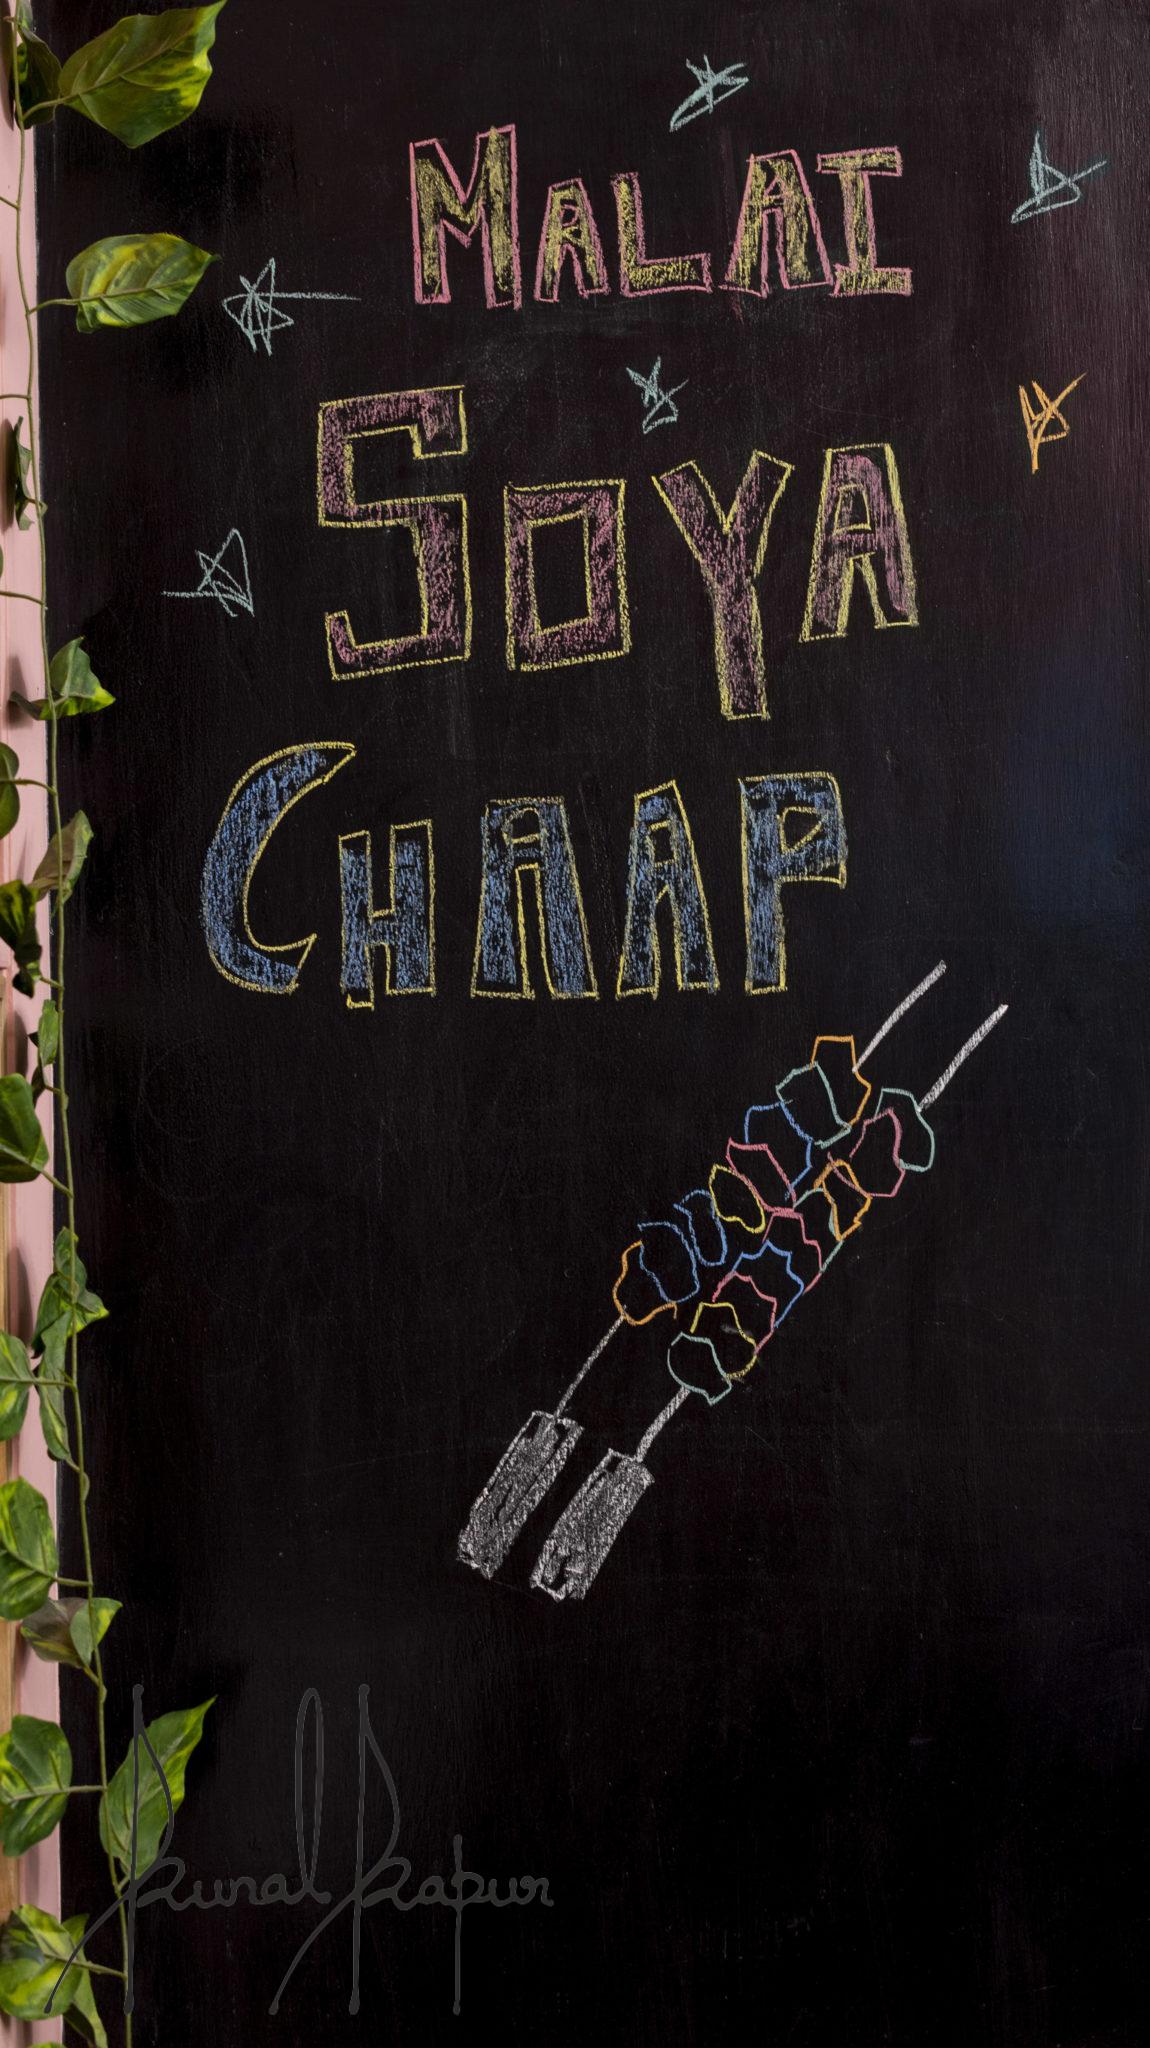 MALAI
SOYA
CHAAP
Kunal Kapur